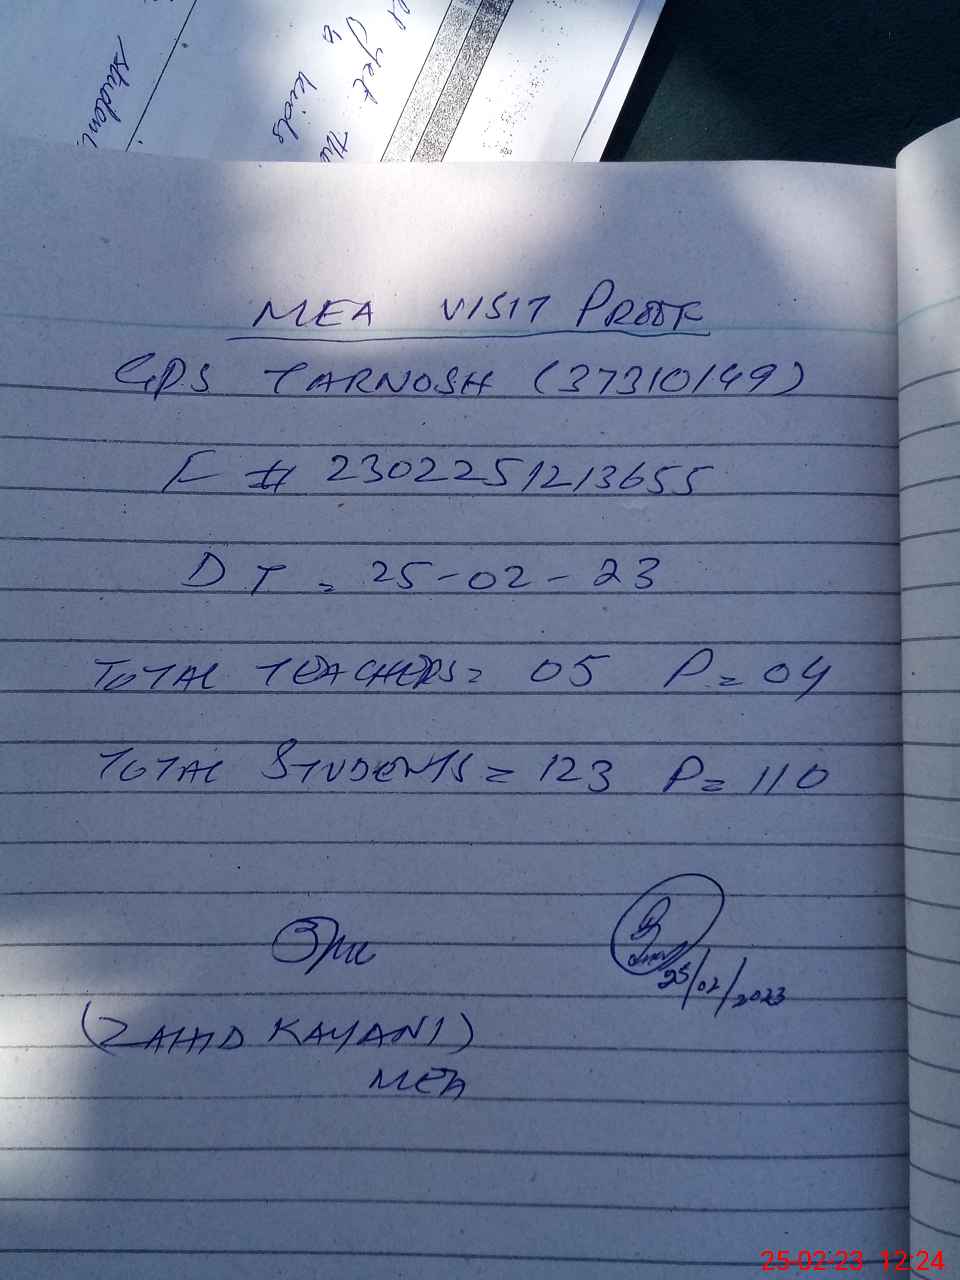 student
kids
yet the
MEA VISIT PROOF
GPS TARNOSH (37310149)
F # 2302251213655
DT = 25-02-23
TOTAL TEACHERS = 05 P = 04
TOTAL STUDENTS = 123 P = 110
25/02/2023
(ZAHID KAYANI)
MEA
25-02-23 12:24